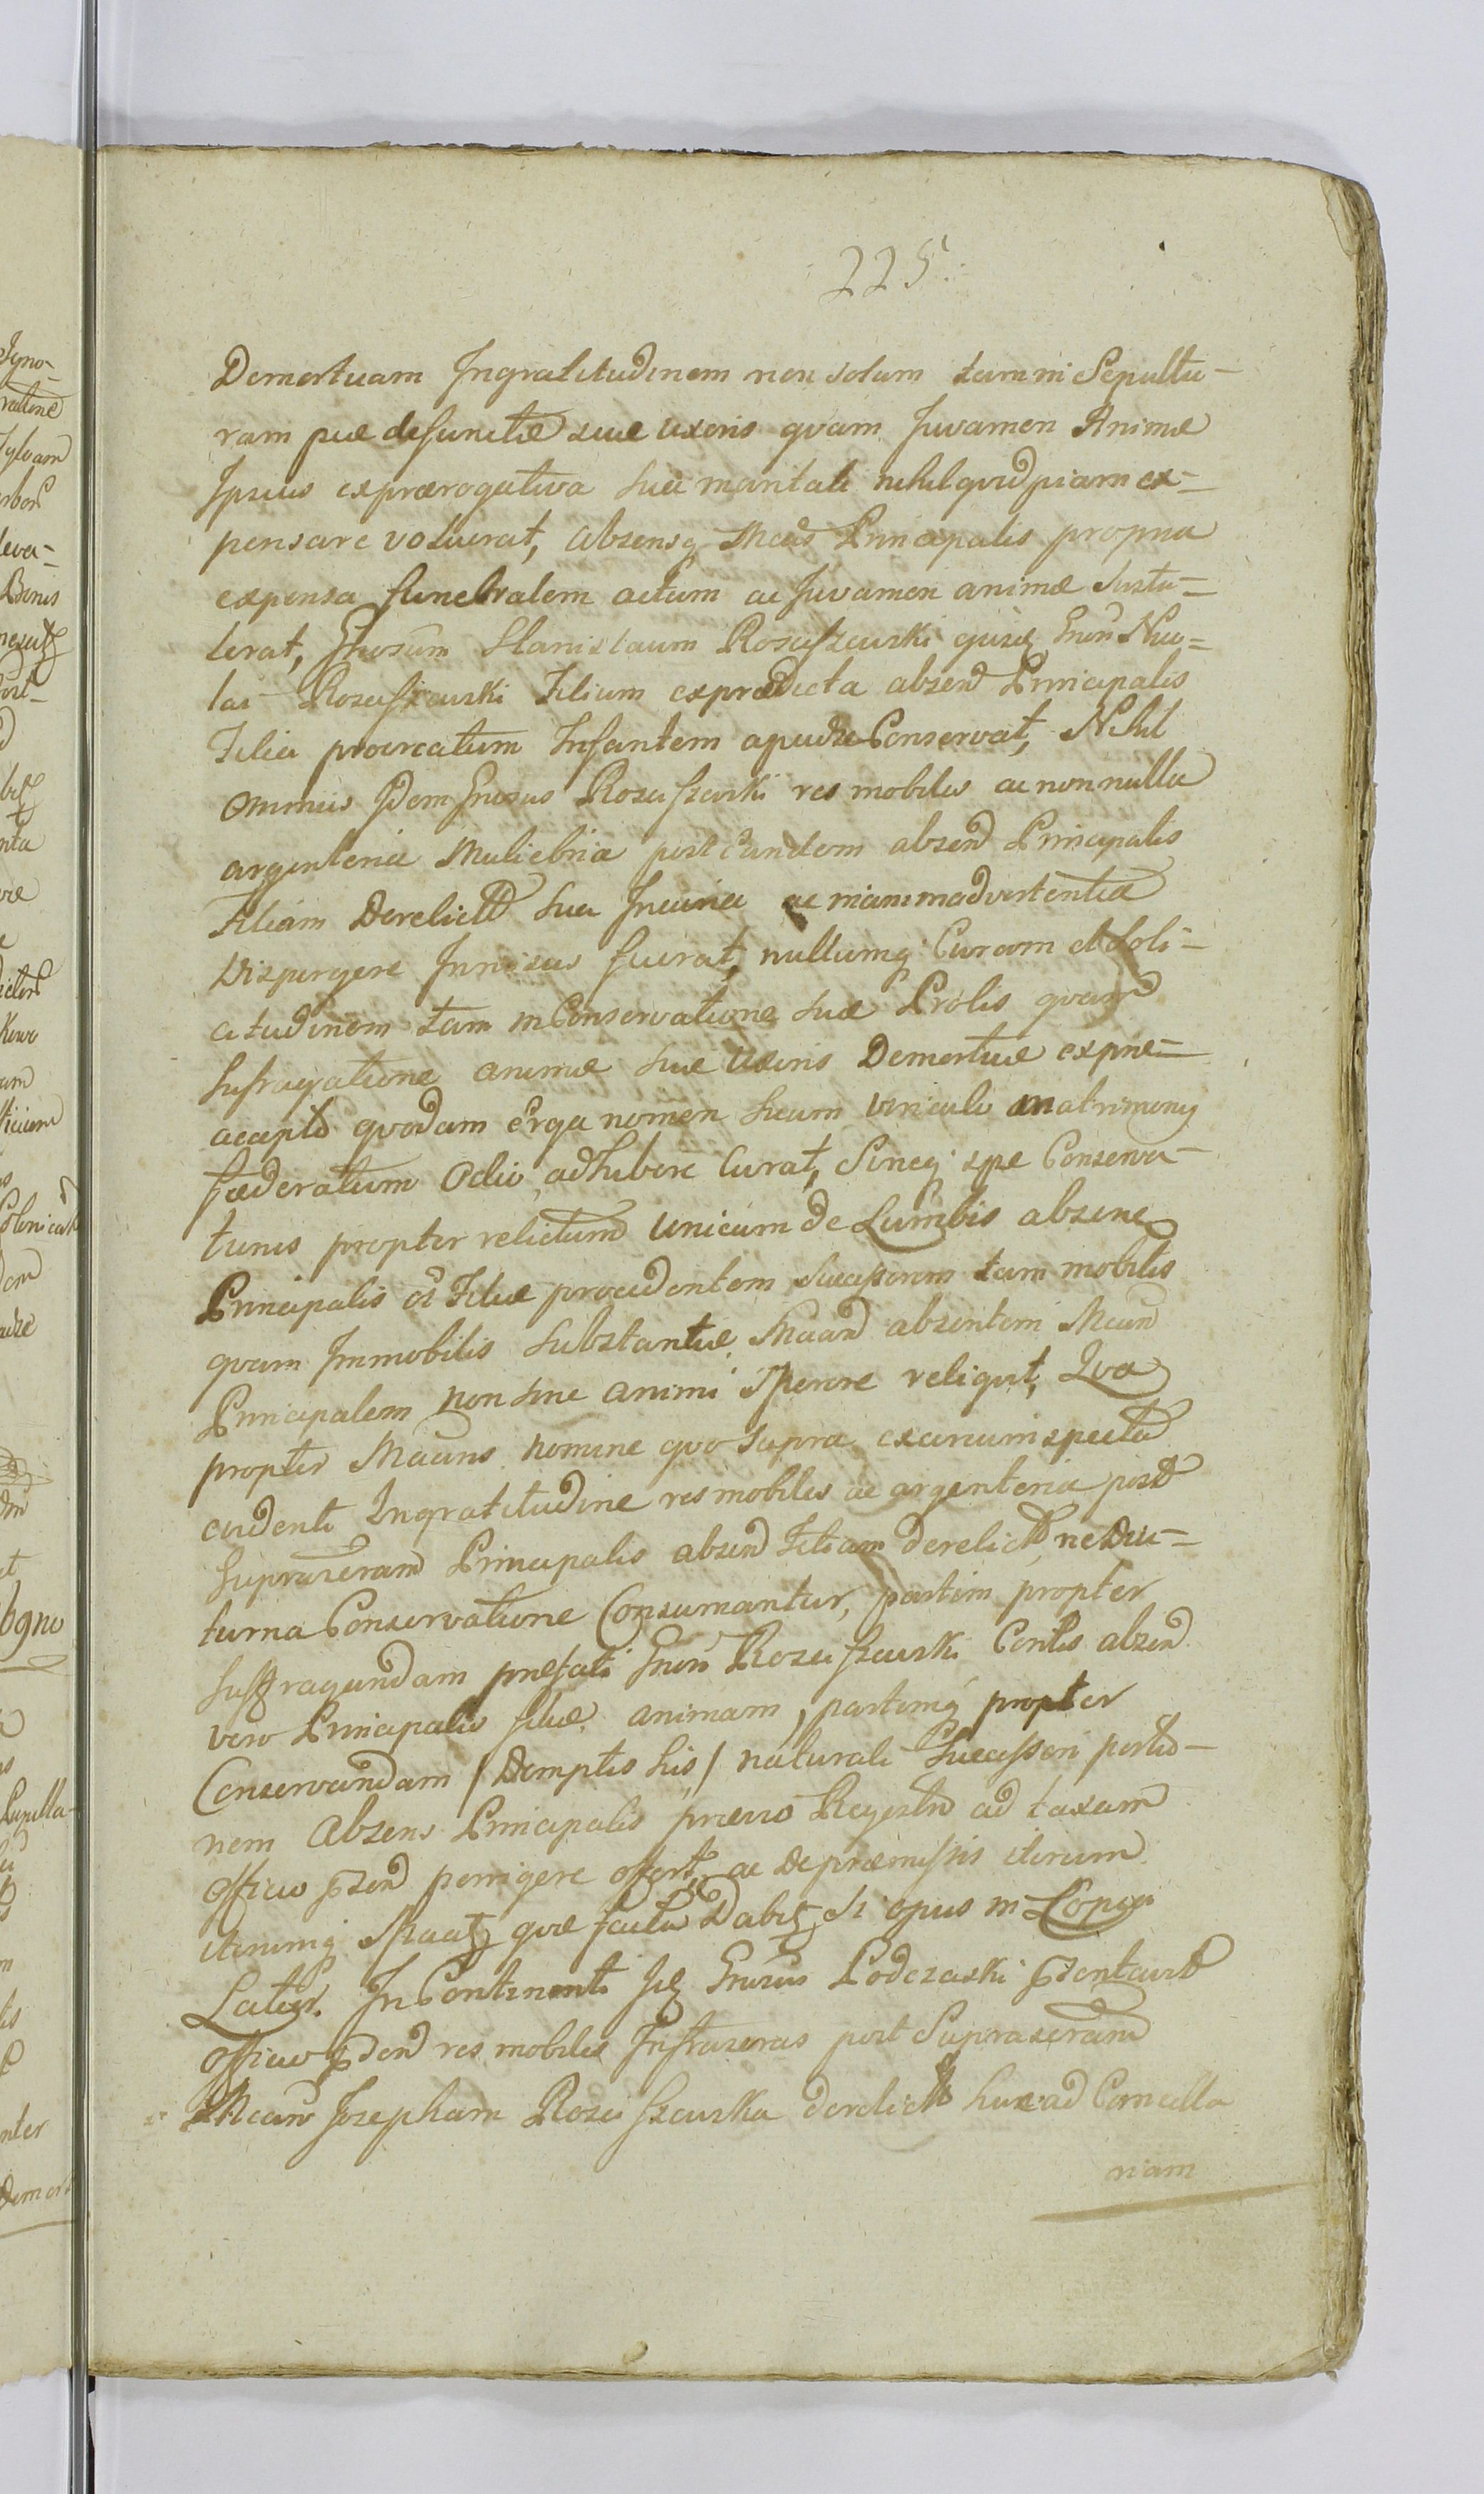 225.
Demortuam Ingratitudinem non solum tam in Sepultu-
ram piæ defunctæ suæ uxoris qvam Juvamen Animæ
Ipsius ex prærogativa sua maritali nihil qvidpiam ex-
pensare voluerat, absensq Mcds Principalis propria
expensa funebralem actum ac Juvamen animæ sustu-
lerat, Gnosum Stanislaum Rozuszewski ejusdę Gnosi Nico-
lai Rozuszewski Filium ex prædicta absend Principalis
Filia procreatum Infantem apud se Conservat, Nihil
ominus Idem Gnosus Rozuszewski res mobiles ac nonnulla
argenteria Muliebria post Eandem absend Principalis
Filiam Derelicta sua Incuria ac inanimadvertentia
Dispergere Innisus fuerat, nullumq Curam et Soli-
citudinem tam in Conservatione suæ Prolis qvam
Sufragatione animæ suæ Uxoris Demortuæ ex præ-
accepto qvodam erga nomen suum vinculo matrimonij
fæderatum Odio adhibere Curat, Sineq spe Conserva-
tionis propter relictum Unicum de Lumbis absens
Principalis Filiæ procedentem Successorem tam mobilis
qvam Immobilis Substantiæ, absentem Mcum
Principalem non sine animi Mærore reliqvit, Qva
propter nomine qvo supra ex circumspecta
evidenti Ingratitudine res mobiles ac argenteria post
supraseram Principalis absend Filiam derelicta, ne Diu-
turna Conservatione Consumantur, partim propter
Suffragandam præfati Gnosi Rozuszewski Contis absend
vero Principalis filiæ animam, partimq propter
Conservandam / Demptis his / naturali Successori portio-
nem Absens Principalis prævio Regestro ad taxam
Officio pzend porrigere offert, ac De præmissis iterum
iterumq qvæ facta Dabit, si opus in Longe
Latius. In Continenti Idę Gnosus Podczaski pzentavit
Officio pzend res mobiles Infraseras post Supraseram
Josepham Rozuszewska derelicta huc ad Cancella
riam